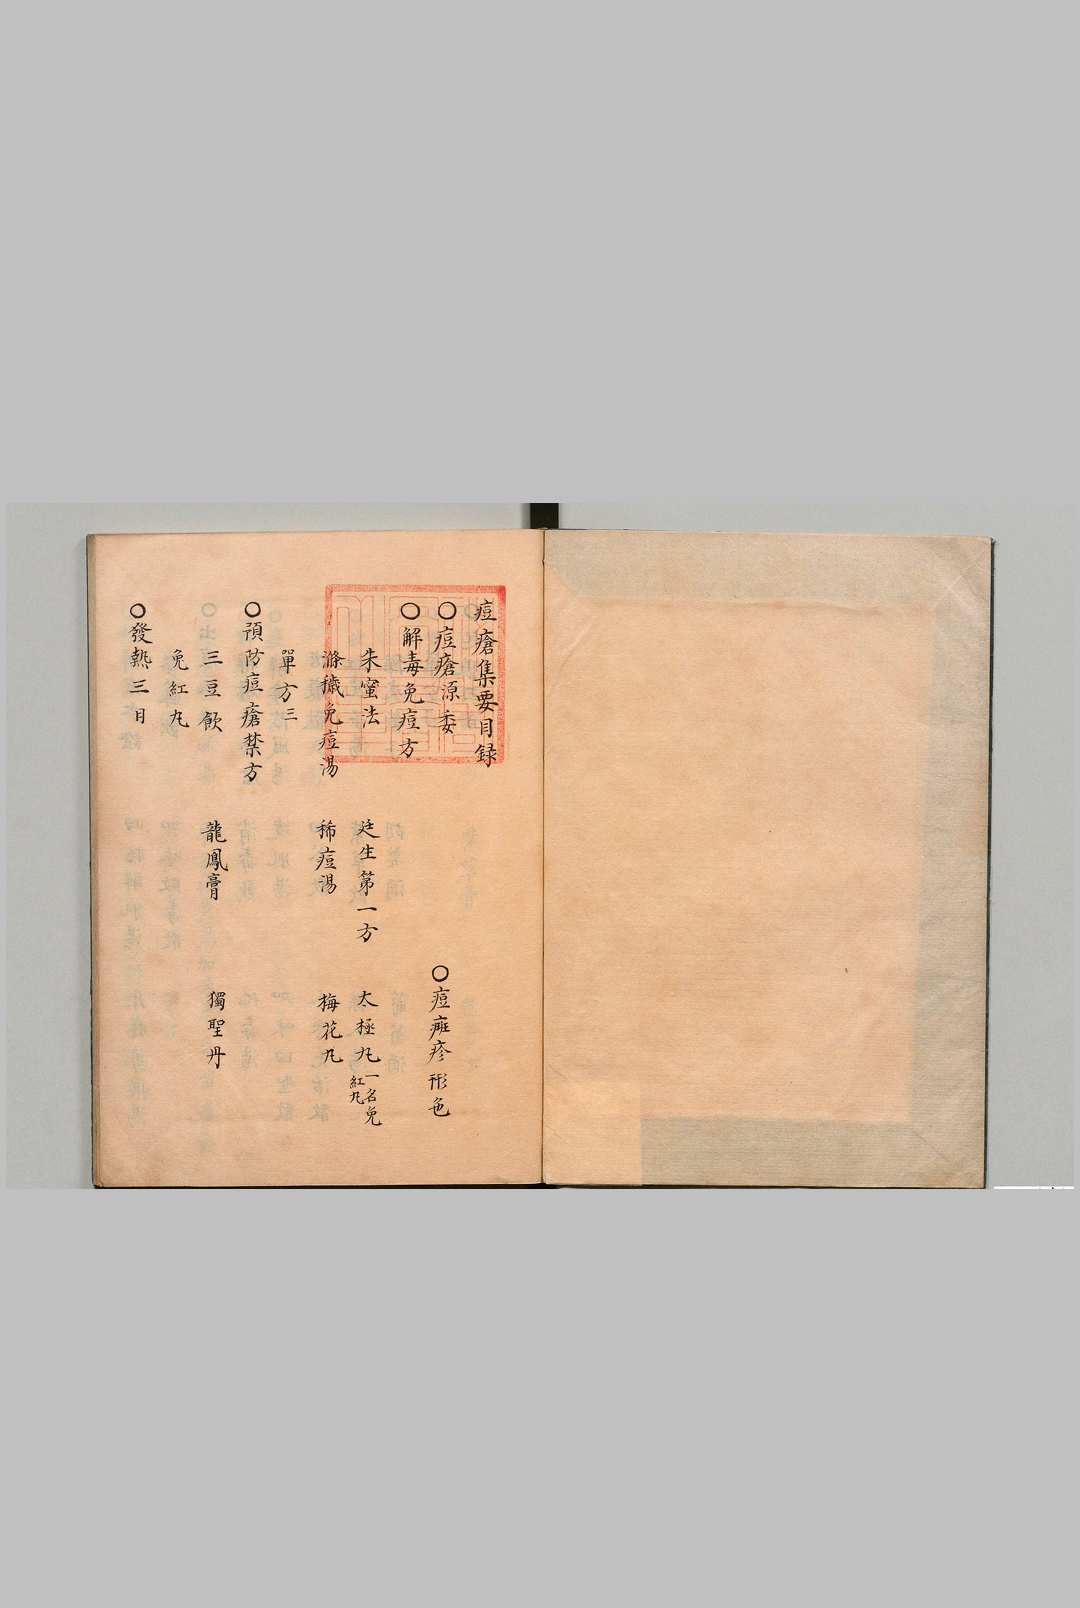 痘瘡集要目録
○痘瘡源委 ○痘疵疹形色
○解毒免痘方
朱蜜法 廷生第一方 太極丸 一名免紅丸
滌穢免痘湯 稀痘湯 梅花丸
單方三
○預防痘瘡禁方
三豆飲 龍鳳膏 獨聖丹
免紅丸
○發熱三日